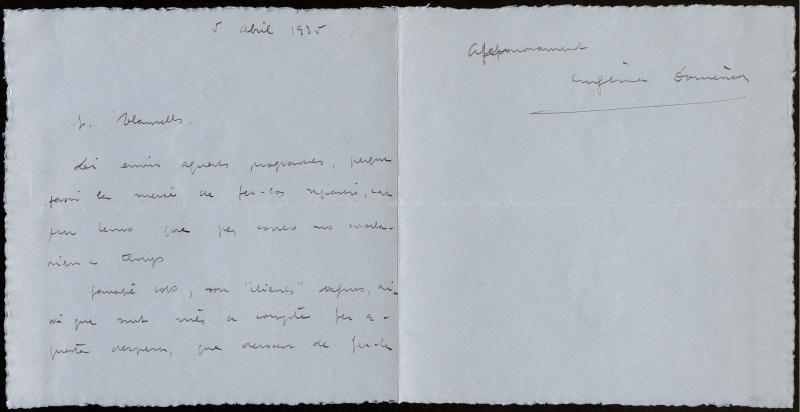 5 abril 1935
Sr. Vlamells.
Li envio aquests programes, perque
fassi la mercè de fer-los repartir, car
em temo que per correo no
a temps
Gairebé tots, son "clients" segurs, ai-
xí que surt més a compte fer a-
questa despesa, que deixar de fer-la
Afectuosament
Eugènia Domènech